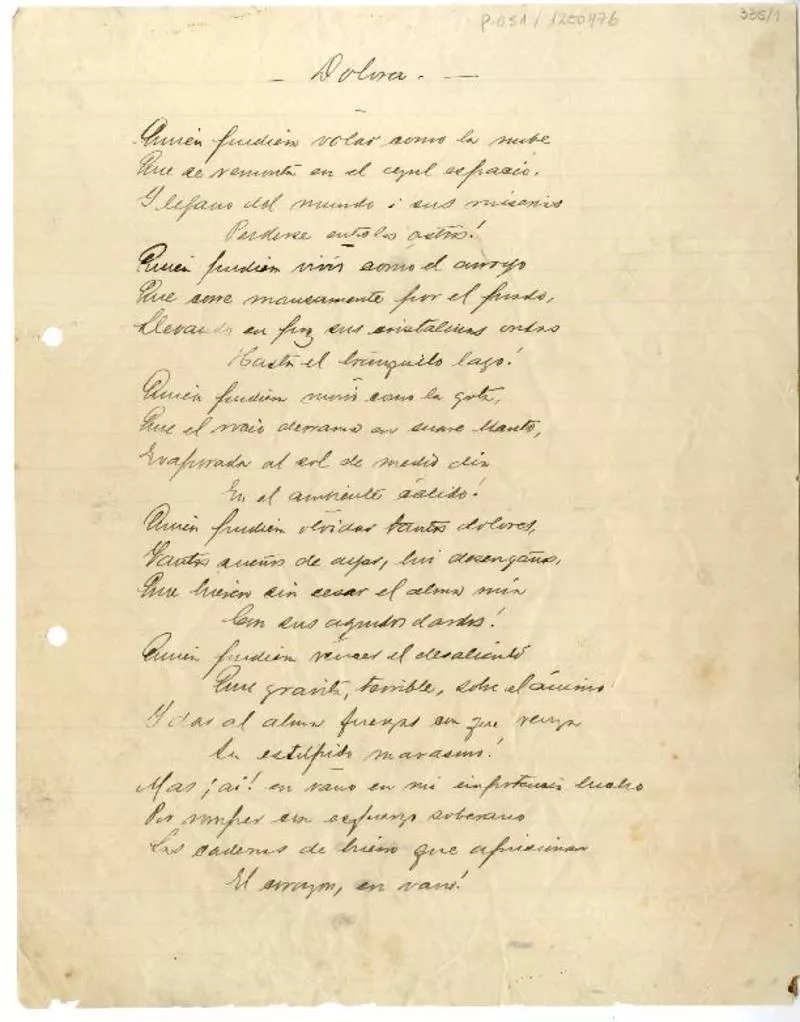 P.051 / 1200476
335/1
— Dolora. —
Quién pudiera volar como la nube
Que se remonta en el azul espacio,
I lejano del mundo i sus miserias
Perderse entre los astros!
Quién pudiera vivir como el arroyo
Que corre mansamente por el prado,
Llevando en paz sus cristalinas ondas
Hasta el tranquilo lago!
Quién pudiera morir como la gota,
Que el rocío derrama en suave llanto,
Evaporada al sol de medio dia
En el ambiente cálido!
Quién pudiera olvidar tantos dolores,
Tantos sueños de ayer, hoi desengaños,
Que hieren sin cesar el alma mia
Con sus agudos dardos!
Quién pudiera vencer el desaliento
Que gravita, terrible, sobre el ánimo
I dar al alma fuerzas con que venza
Su estúpido marasmo!
Mas ¡ai! en vano en mi impotencia lucho
Por romper con esfuerzo soberano
Las cadenas de hierro que aprisionan
El corazon, en vano!